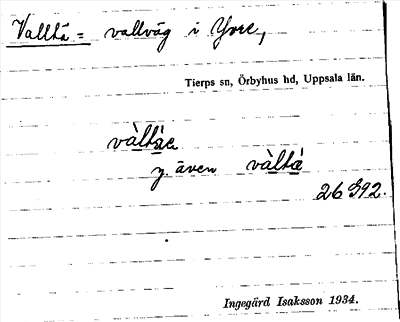 Valltä = vallväg i Yvre,
Tierps sn, Örbyhus hd, Uppsala län.
vàltæ
y. även vàltǽ
26 392.
Ingegärd Isaksson 1934.